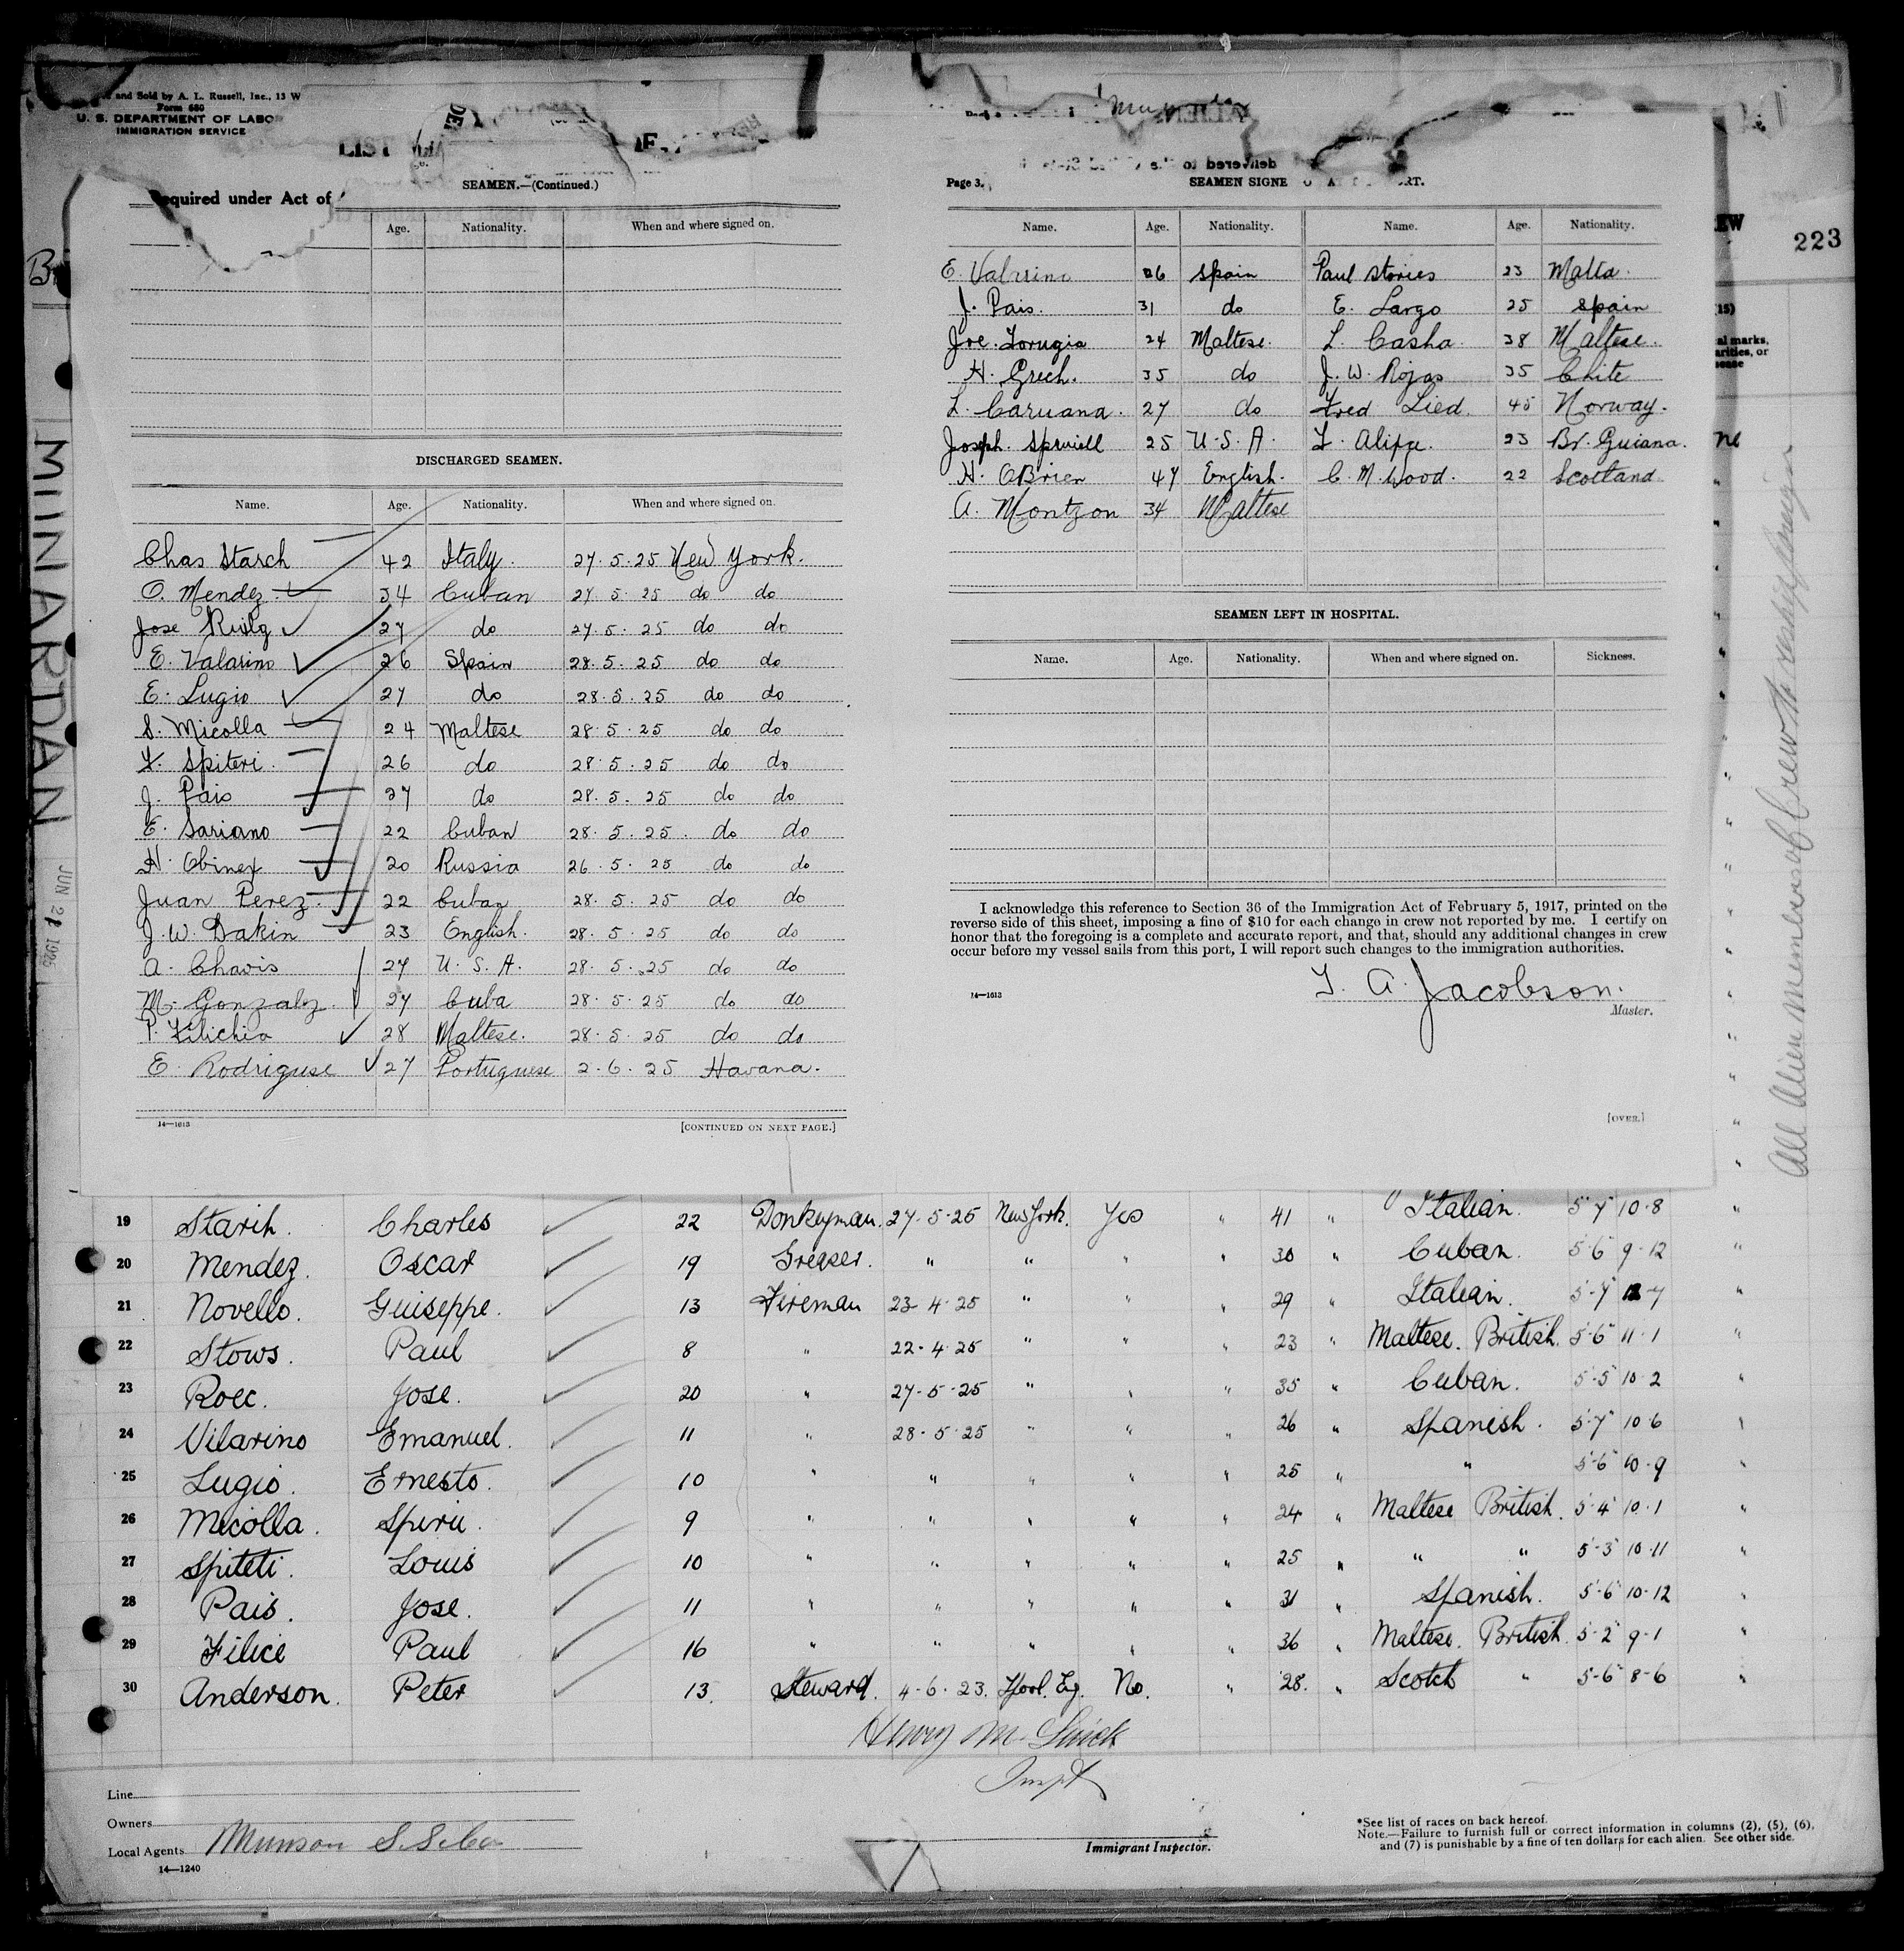 and Sold by A. L. Russell, Inc., 13 W
Form 680
U. S. DEPARTMENT OF LABOR
IMMIGRATION SERVICE
LIST
Required under Act of
223
MUNARDAN
JUN 2 1925
SEAMEN.—(Continued.)
Age. Nationality. When and where signed on.
DISCHARGED SEAMEN.
Name. Age. Nationality. When and where signed on.
Chas Starch 42 Italy. 27.5.25 New York.
O. Mendez 34 Cuban 27.5.25 do do
Jose 27 do 27.5.25 do do
E. Valarino 26 Spain 28.5.25 do do
E. Lugio 27 do 28.5.25 do do
S. Micolla 24 Maltese 28.5.25 do do
L. Spiteri. 26 do 28.5.25 do do
J. Pais 27 do 28.5.25 do do
E. Sariano 22 Cuban 28.5.25. do do
H. Obinex 20 Russia 26.5.25 do do
Juan Perez. 22 Cuban 28.5.25 do do
J. W. Dakin 23 English. 28.5.25 do do
A. Chavis 27 U.S.A. 28.5.25 do do
M. Gonzalez 27 Cuba 28.5.25 do do
P. Filichia 28 Maltese. 28.5.25 do do
E. Rodriguse 27 Portuguese 2.6.25 Havana.
14—1613 [CONTINUED ON NEXT PAGE.]
delivered to
Page 3.
SEAMEN SIGNE
Name. Age. Nationality. Name. Age. Nationality.
E. Valarino 26 Spain Paul Stories 23 Malta.
J. Pais. 31 do E. Largo 25 Spain
Joe. Forugia 24 Maltese. L. Casha. 38 Maltese.
H. Grech. 35 do J. W. Rojas 35 Chile
L. Caruana. 27 do Fred Lied. 45 Norway.
Joseph. Spruiell 25 U.S.A. 23 Br. Guiana.
H. OBrien 47 English. C. M. Wood. 22 Scotland.
A. Montzon 34 Maltese
SEAMEN LEFT IN HOSPITAL.
Name. Age. Nationality. When and where signed on. Sickness.
I acknowledge this reference to Section 36 of the Immigration Act of February 5, 1917, printed on the
reverse side of this sheet, imposing a fine of $10 for each change in crew not reported by me. I certify on
honor that the foregoing is a complete and accurate report, and that, should any additional changes in crew
occur before my vessel sails from this port, I will report such changes to the immigration authorities.
14—1613
T. A. Jacobson.
Master.
[OVER.]
All Alien Members of Crew to reship foreign
19 Starih. Charles 22 Donkeyman. 27-5-25 New York. Yes " 41 " Italian. 5-7 10-8 "
20 Mendez. Oscar 19 Greaser. " " " " 30 " Cuban. 5-6 9-12 "
21 Novello. Guiseppe. 13 Fireman 23-4-25 " " " 29 " Italian. 5-7 "
22 Stows. Paul 8 " 22-4-25 " " " 23 " Maltese. British. 5-6 11-1 "
23 Roec. Jose. 20 " 27-5-25 " " " 35 " Cuban. 5-5 10-2 "
24 Vilarino Emanuel. 11 " 28-5-25 " " " 26 " Spanish. 5-7 10-6 "
25 Lugio. Ernesto. 10 " " " " " 25 " " 5-6 10-9 "
26 Micolla. Spirie. 9 " " " " " 24 " Maltese British. 5-4 10-1 "
27 Spiteti. Louis 10 " " " " " 25 " " " 5-3 10-11 "
28 Pais. Jose. 11 " " " " " 31 " Spanish. 5-6 10-12 "
29 Filice Paul 16 " " " " " 36 " Maltese. British. 5-2 9-1 "
30 Anderson. Peter 13. Steward. 4-6-23. Lpool. Eg. No. " 28. " Scotch " 5-6 8-6 "
Henry M.
Inspt
Line
Owners
Local Agents Munson S.S. Co
14—1240
Immigrant Inspector.
*See list of races on back hereof.
Note.—Failure to furnish full or correct information in columns (2), (5), (6),
and (7) is punishable by a fine of ten dollars for each alien. See other side.